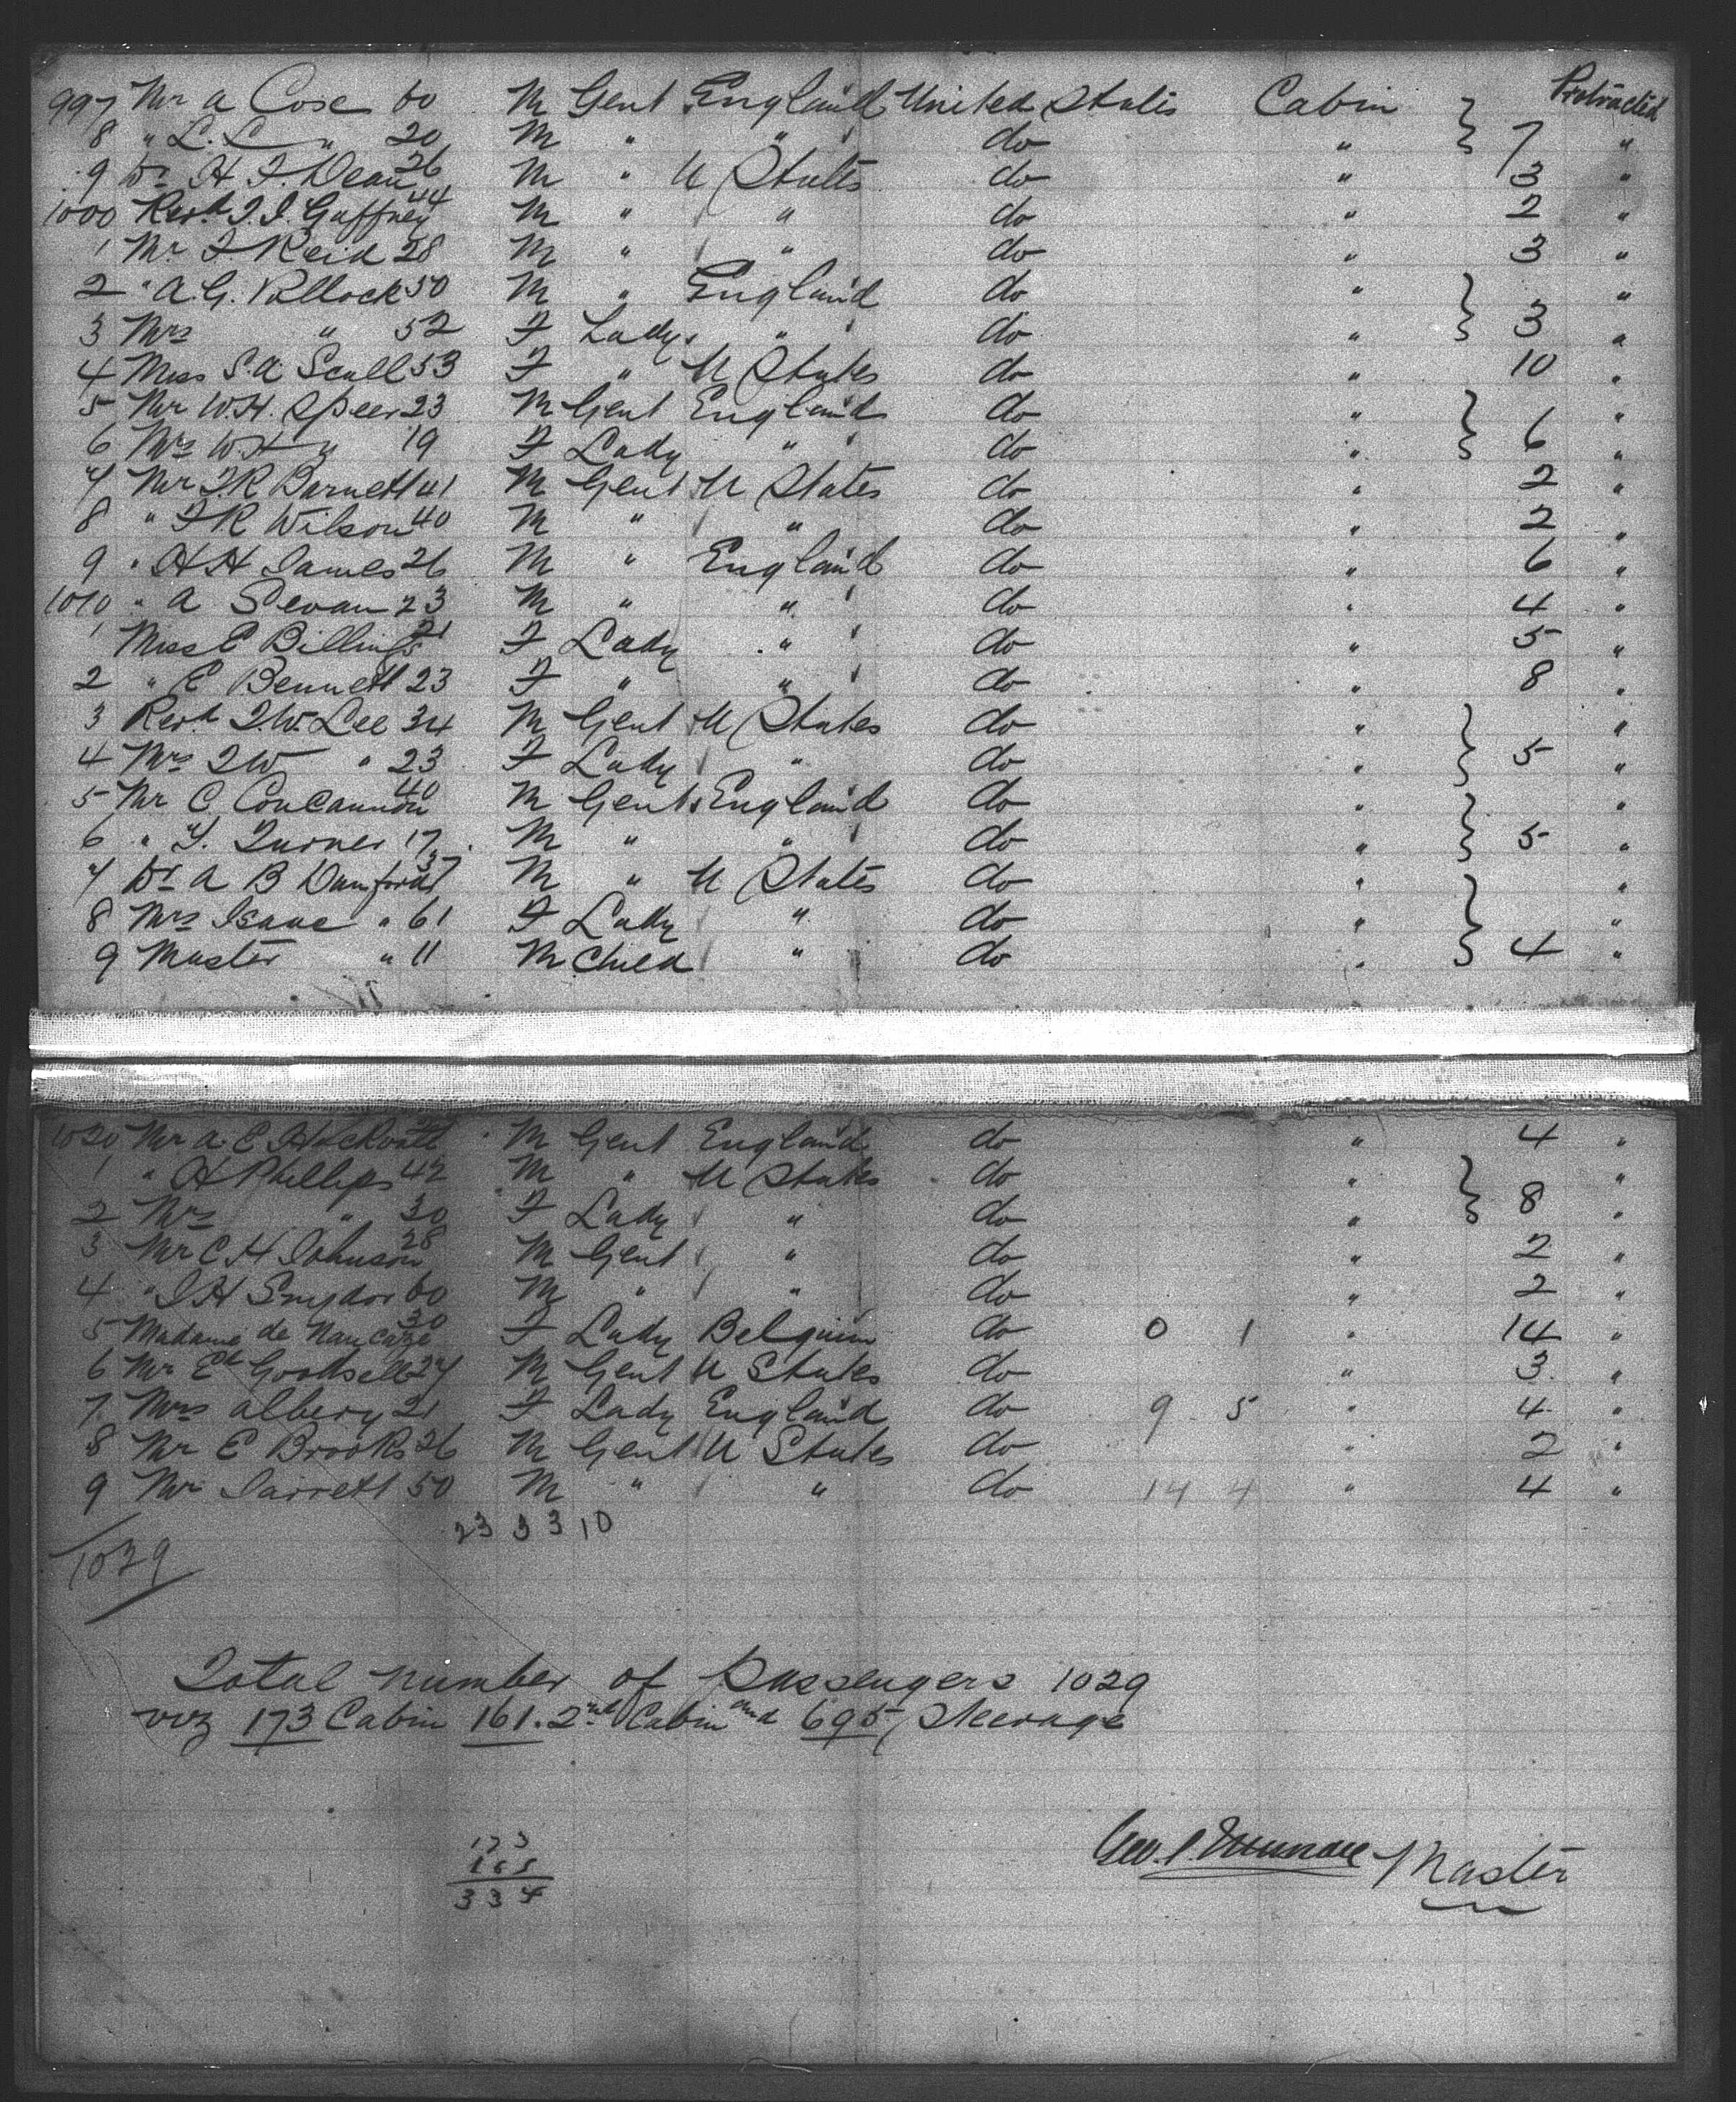 997 Mr A Cose 60 M Gent England United States Cabin } Protracted
8 " L. L " 20 M " " do " 7 "
9 Dr H. J. Dean 26 M " U States do " 3 "
1000 Revd T. J. Gaffney 44 M " " do " 2 "
1 Mr J Reid 28 M " " do " 3 "
2 " A. G. Pollock 50 M " England do " } "
3 Mrs " 52 F Lady " do " 3 "
4 Miss S. A Scull 53 F " U States do " 10 "
5 Mr W. H. Speer 23 M Gent England do " } "
6 Mrs W. H " 19 F Lady " do " 6 "
7 Mr J. R Barnett 41 M Gent U States do " 2 "
8 " J R Wilson 40 M " " do " 2 "
9 " H H James 26 M " England do " 6 "
1010 " A 23 M " " do " 4 "
1 Miss E Billings 21 F Lady " do " 5 "
2 " E Bennett 23 F " " do " 8 "
3 Revd J. W. Lee 34 M Gent U States do " } "
4 Mrs J W " 23 F Lady " do " 5 "
5 Mr C Concannon 40 M Gent England do " } "
6 " Y. Turner 17 M " " do " 5 "
7 Dr A B 37 M " U States do " } "
8 Mrs Isaac " 61 F Lady " do " "
9 Master " 11 M Child " do " 4 "
1020 Mr A. E M Gent England do " 4 "
1 " H Phillips 42 M " U States do " } "
2 Mrs " 30 F Lady " do " 8 "
3 Mr C H Johnson 28 M Gent " do " 2 "
4 " J H Snydor 60 M " " do " 2 "
5 Madame de 30 F Lady Belgium do 0 1 " 14 "
6 Mr Ed Goodsell 27 M Gent U States do " 3 "
7 Mrs Albery 21 F Lady England do 9 5 " 4 "
8 Mr E Brooks 26 M Gent U States do " 2 "
9 Mr Jarrett 50 M " " do 14 4 " 4 "
23 3 3 10
1029
Total number of Passengers 1029
viz 173 Cabin 161. 2nd Cabin and 695 Steerage
173
334
Master